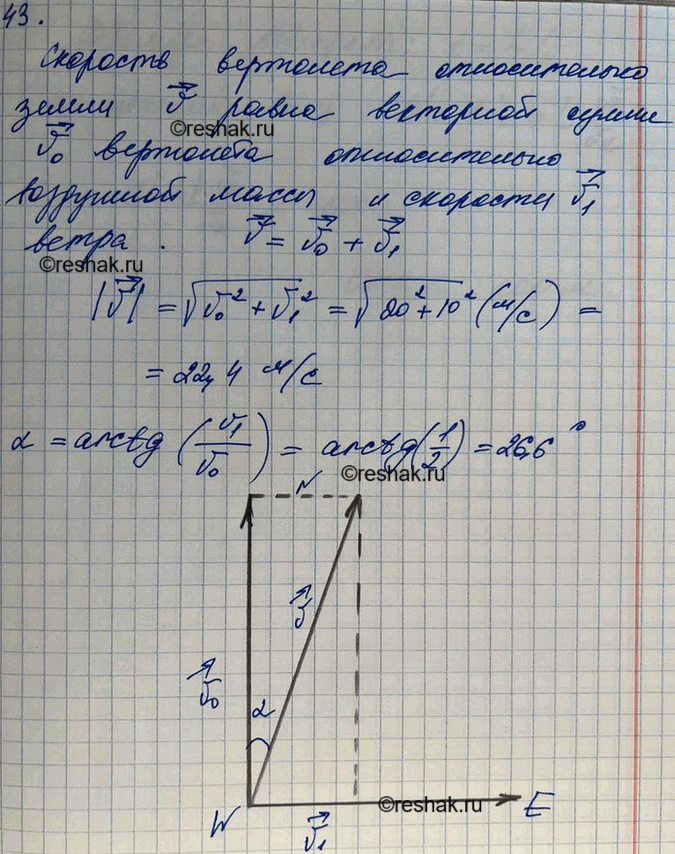 43.
Скорость вертолета относительно
земли v⃗ равна векторной сумме
©reshak.ru
v⃗₀ вертолёта относительно
воздушной массы и скорости v⃗₁
ветра. v⃗ = v⃗₀ + v⃗₁
©reshak.ru
|v⃗| = √(v₀² + v₁²) = √(20² + 10²) (м/с) =
= 22,4 м/с
α = arctg (v₁/v₀) = arctg(1/2) = 26,6°
©reshak.ru
N
v⃗
v⃗₀
α
W
v⃗₁
©reshak.ru
E